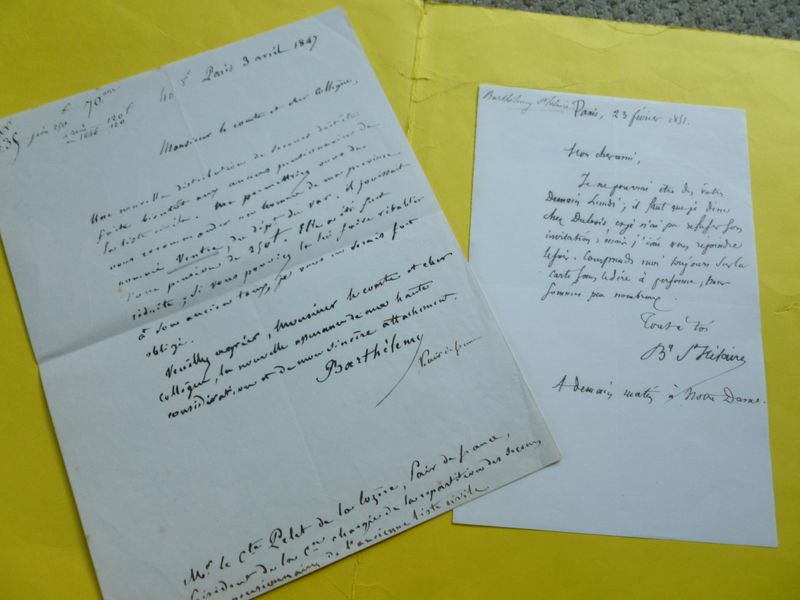 70
40 f Paris 3 avril 1847
Monsieur le comte et cher Collègue,
Une nouvelle distribution de secours doit être
faite bientôt aux anciens pensionnaires de
la liste civile. Me permettrez vous de
vous recommander un homme de ma province
nommé du dépt du var. il jouissait
d'une pension de 250f. Elle a été fort
réduite; Si vous pouviez la lui faire rétablir
à son ancien taux, je vous en serais fort
obligé.
Veuillez agréer, Monsieur le comte et cher
collègue, la nouvelle assurance de ma haute
considération et de mon sincère attachement.
Barthélemy
Pair de france
Mr le Cte Pelet de la Lozère, Pair de france,
Président de la Con chargée de la répartition des secours
pensionnaires de l'ancienne liste civile
Barthélemy St hilaire
Paris, 23 février 1851.
Mon cher ami,
Je ne pourrai être des vôtres
Demain Lundi; il faut que je dîne
chez Dubois
invitation; mais j'irai vous reprendre
le soir. Comprends moi toujours sur la
carte sans le dire à personne,
sommes peu nombreux.
Tout à toi
By St Hilaire
A demain matin à Notre Dame.